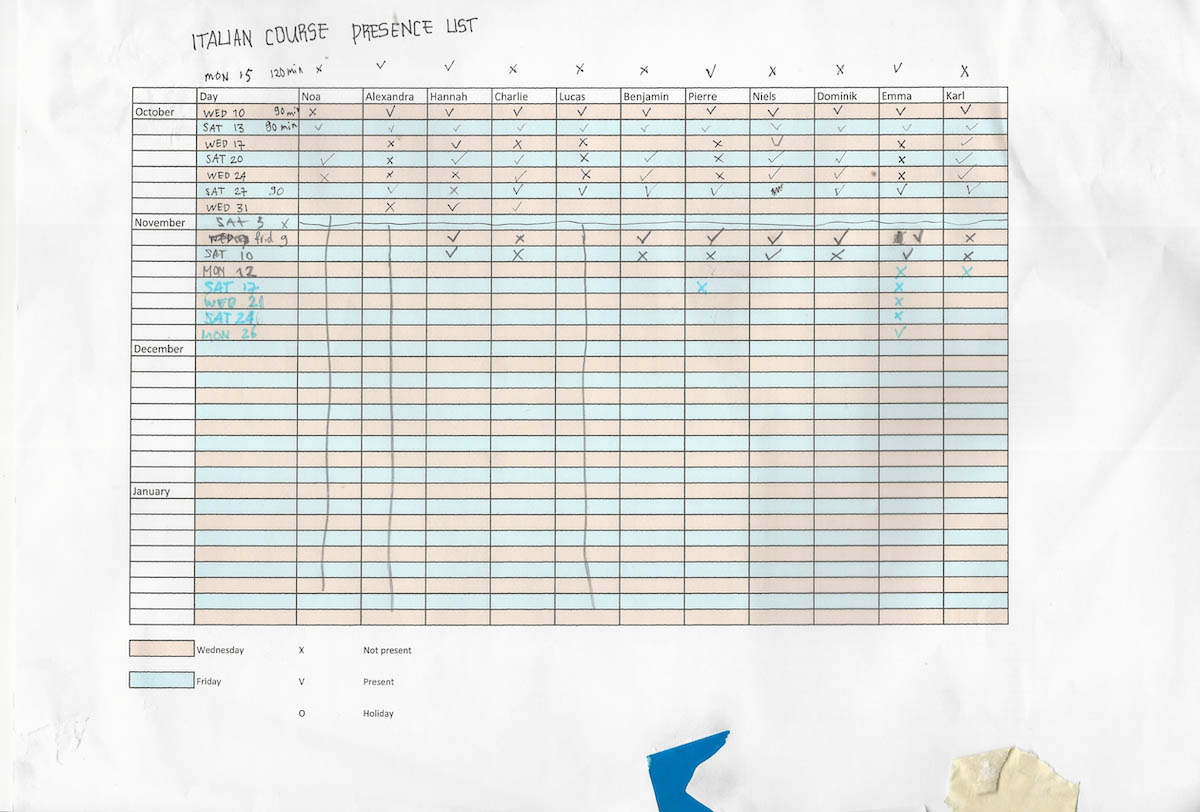 ITALIAN COURSE PRESENCE LIST
MON 15 120 min x ✓ ✓ x x x ✓ x x ✓ x
Day Noa Alexandra Hannah Charlie Lucas Benjamin Pierre Niels Dominik Emma Karl
October WED 10 90 min x ✓ ✓ ✓ ✓ ✓ ✓ ✓ ✓ ✓ ✓
SAT 13 90 min ✓ ✓ ✓ ✓ ✓ ✓ ✓ ✓ ✓ ✓ ✓
WED 17 x ✓ x x x ✓ x ✓
SAT 20 ✓ x ✓ ✓ x ✓ x ✓ ✓ x ✓
WED 24 x x x ✓ x ✓ x ✓ ✓ x ✓
SAT 27 90 ✓ x ✓ ✓ ✓ ✓ ✓ ✓ ✓
WED 31 x ✓ ✓
November SAT 3 x
frid 9 ✓ x ✓ ✓ ✓ ✓ ✓ x
SAT 10 ✓ x x x ✓ x ✓ x
MON 12 x x
SAT 17 x x
WED 21 x
SAT 24 x
MON 26 ✓
December
January
Wednesday X Not present
Friday V Present
O Holiday